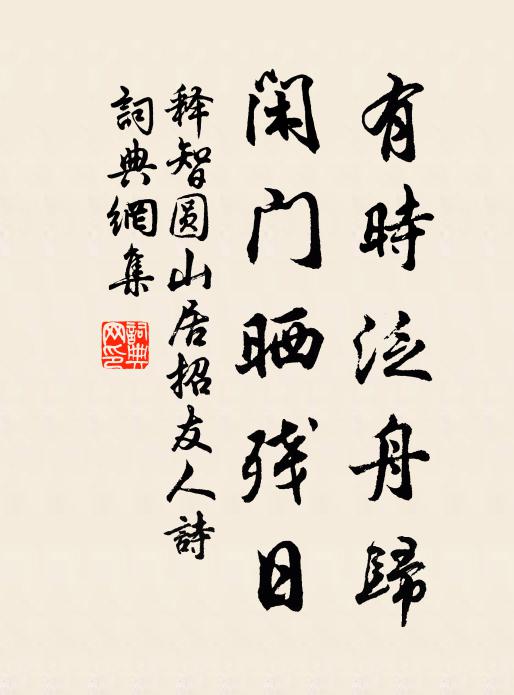 有時泛舟歸
闲门晒残日
释智圆山居招友人詩
詞典網集
詞典网印